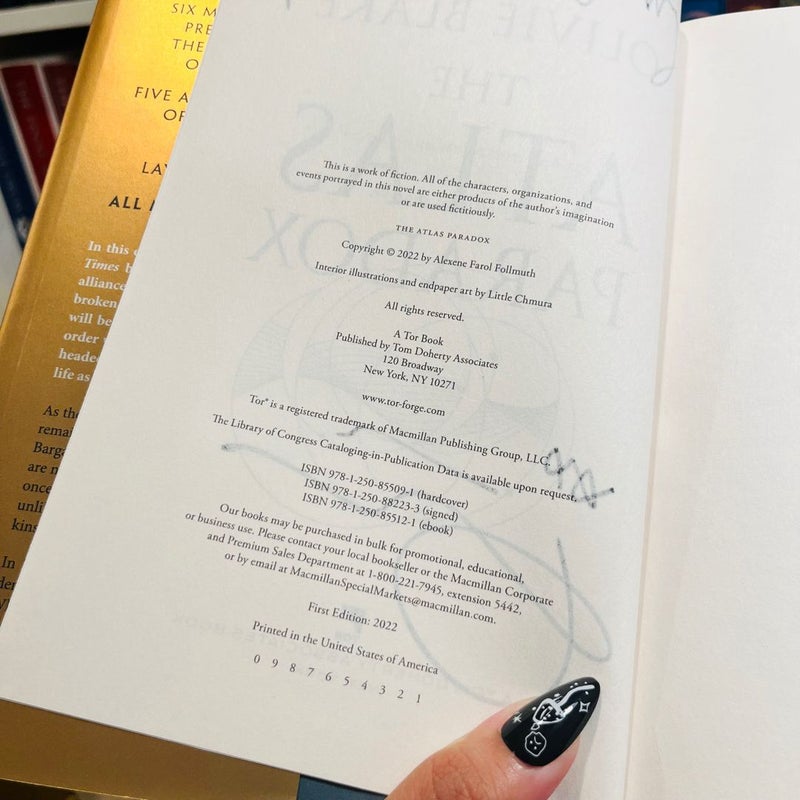 SIX
PRE
THE
FIVE A
OF
LAY
ALL
In this
Times
alliance
broken
will be
order
heade
life as
As the
remai
Barga
are n
once
unli
kins
In
OLIVIE BLAKE
THE
ATLAS
PARADOX
This is a work of fiction. All of the characters, organizations, and
events portrayed in this novel are either products of the author's imagination
or are used fictitiously.
THE ATLAS PARADOX
Copyright © 2022 by Alexene Farol Follmuth
Interior illustrations and endpaper art by Little Chmura
All rights reserved.
A Tor Book
Published by Tom Doherty Associates
120 Broadway
New York, NY 10271
www.tor-forge.com
Tor® is a registered trademark of Macmillan Publishing Group, LLC.
The Library of Congress Cataloging-in-Publication Data is available upon request.
ISBN 978-1-250-85509-1 (hardcover)
ISBN 978-1-250-88223-3 (signed)
ISBN 978-1-250-85512-1 (ebook)
Our books may be purchased in bulk for promotional, educational,
or business use. Please contact your local bookseller or the Macmillan Corporate
and Premium Sales Department at 1-800-221-7945, extension 5442,
or by email at MacmillanSpecialMarkets@macmillan.com.
First Edition: 2022
Printed in the United States of America
0 9 8 7 6 5 4 3 2 1